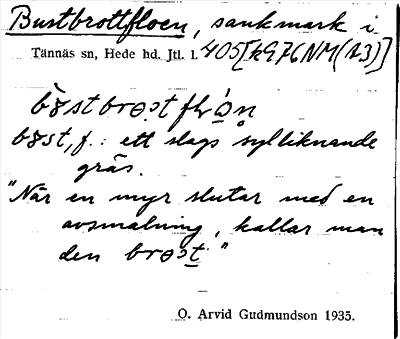 Bustbrottfloen, sankmark i
Tännäs sn, Hede hd. Jtl. l. 405[kG76NM(13)]
bəst, f.: ett slags sylliknande
gräs.
"När en myr slutar med en
avsmalning, kallar man
den brəst"
O. Arvid Gudmundson 1935.